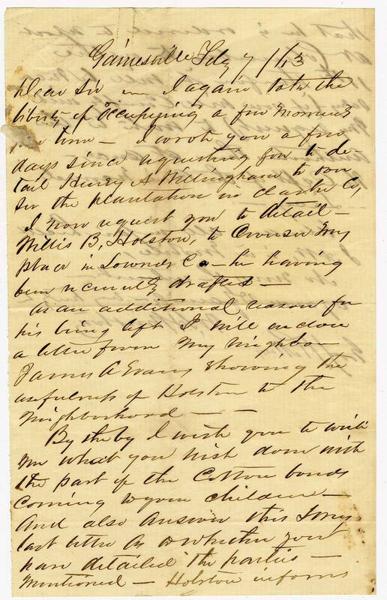 Gainesville Feby 7 /63
Dear Sir — I again take the
liberty of occupying a few moments
time — I wrote you a few
days since requesting you to de-
tail Henry A Willingham to over
see the plantation in Clarke Co,
I now request you to detail —
Willis B, Holston, to oversee my
place in Lowndes Co — he having
been recently drafted —
As an additional reason for
his being left I will enclose
a letter from my neighbor
James A Evans showing the
usefulness of Holston to the
Neighborhood — —
By the by I wish you to write
me what you wish done with
the part of the Cotton bonds
coming to your children —
And also answer this &
last letter as to whether you
have detailed the parties —
mentioned — Holston informs